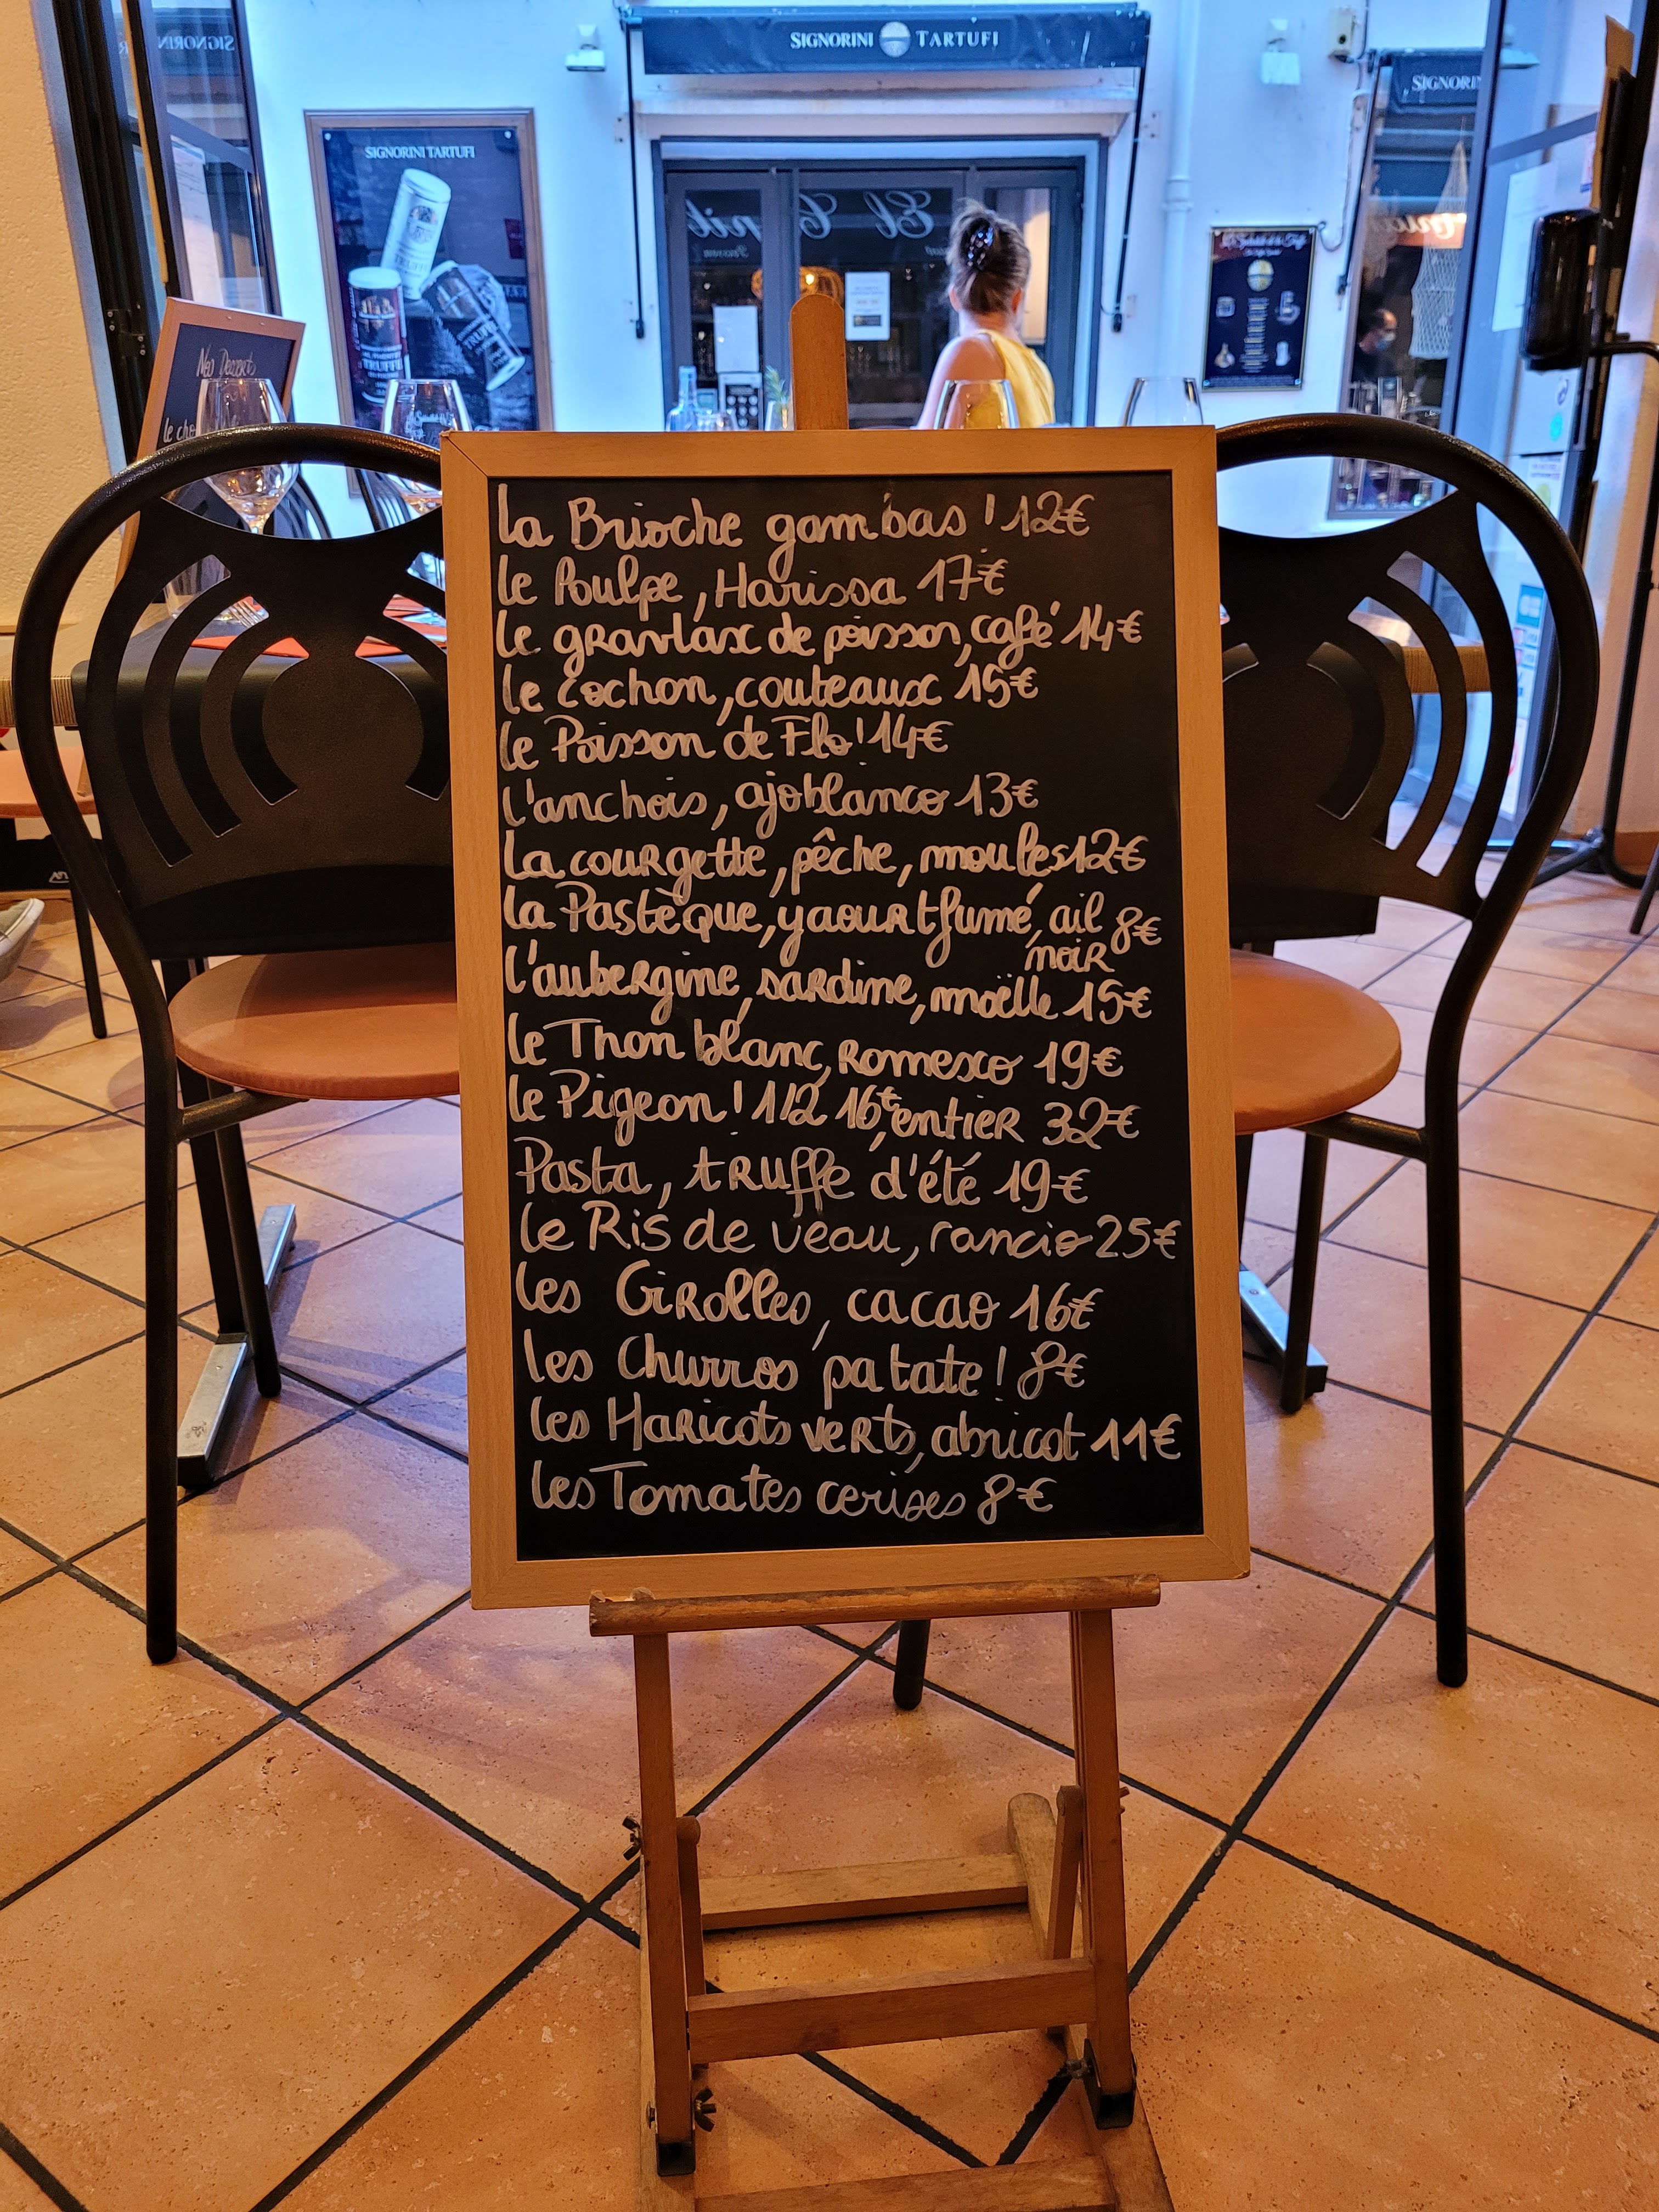 SIGNORINI TARTUFI
SIGNORIN
SIGNORINI TARTUFI
TRUFFE
Nos Desserts
le cho
la Brioche gambas ! 12€
le Poulpe, Harissa 17€
le gravlax de poisson, café 14€
le cochon, couteaux 15€
le Poisson de Flo ! 14€
l'anchois, ajoblanco 13€
La courgette, pêche, moules 12€
la Pastèque, yaourt fumé, ail 8€
noir
l'aubergine, sardine, moëlle 15€
le Thon blanc, Romesco 19€
le Pigeon ! 1/2 16€, entier 32€
Pasta, truffe d'été 19€
le Ris de veau, rancio 25€
les Girolles, cacao 16€
les Churros patate ! 8€
les Haricots verts, abricot 11€
les Tomates cerises 8€